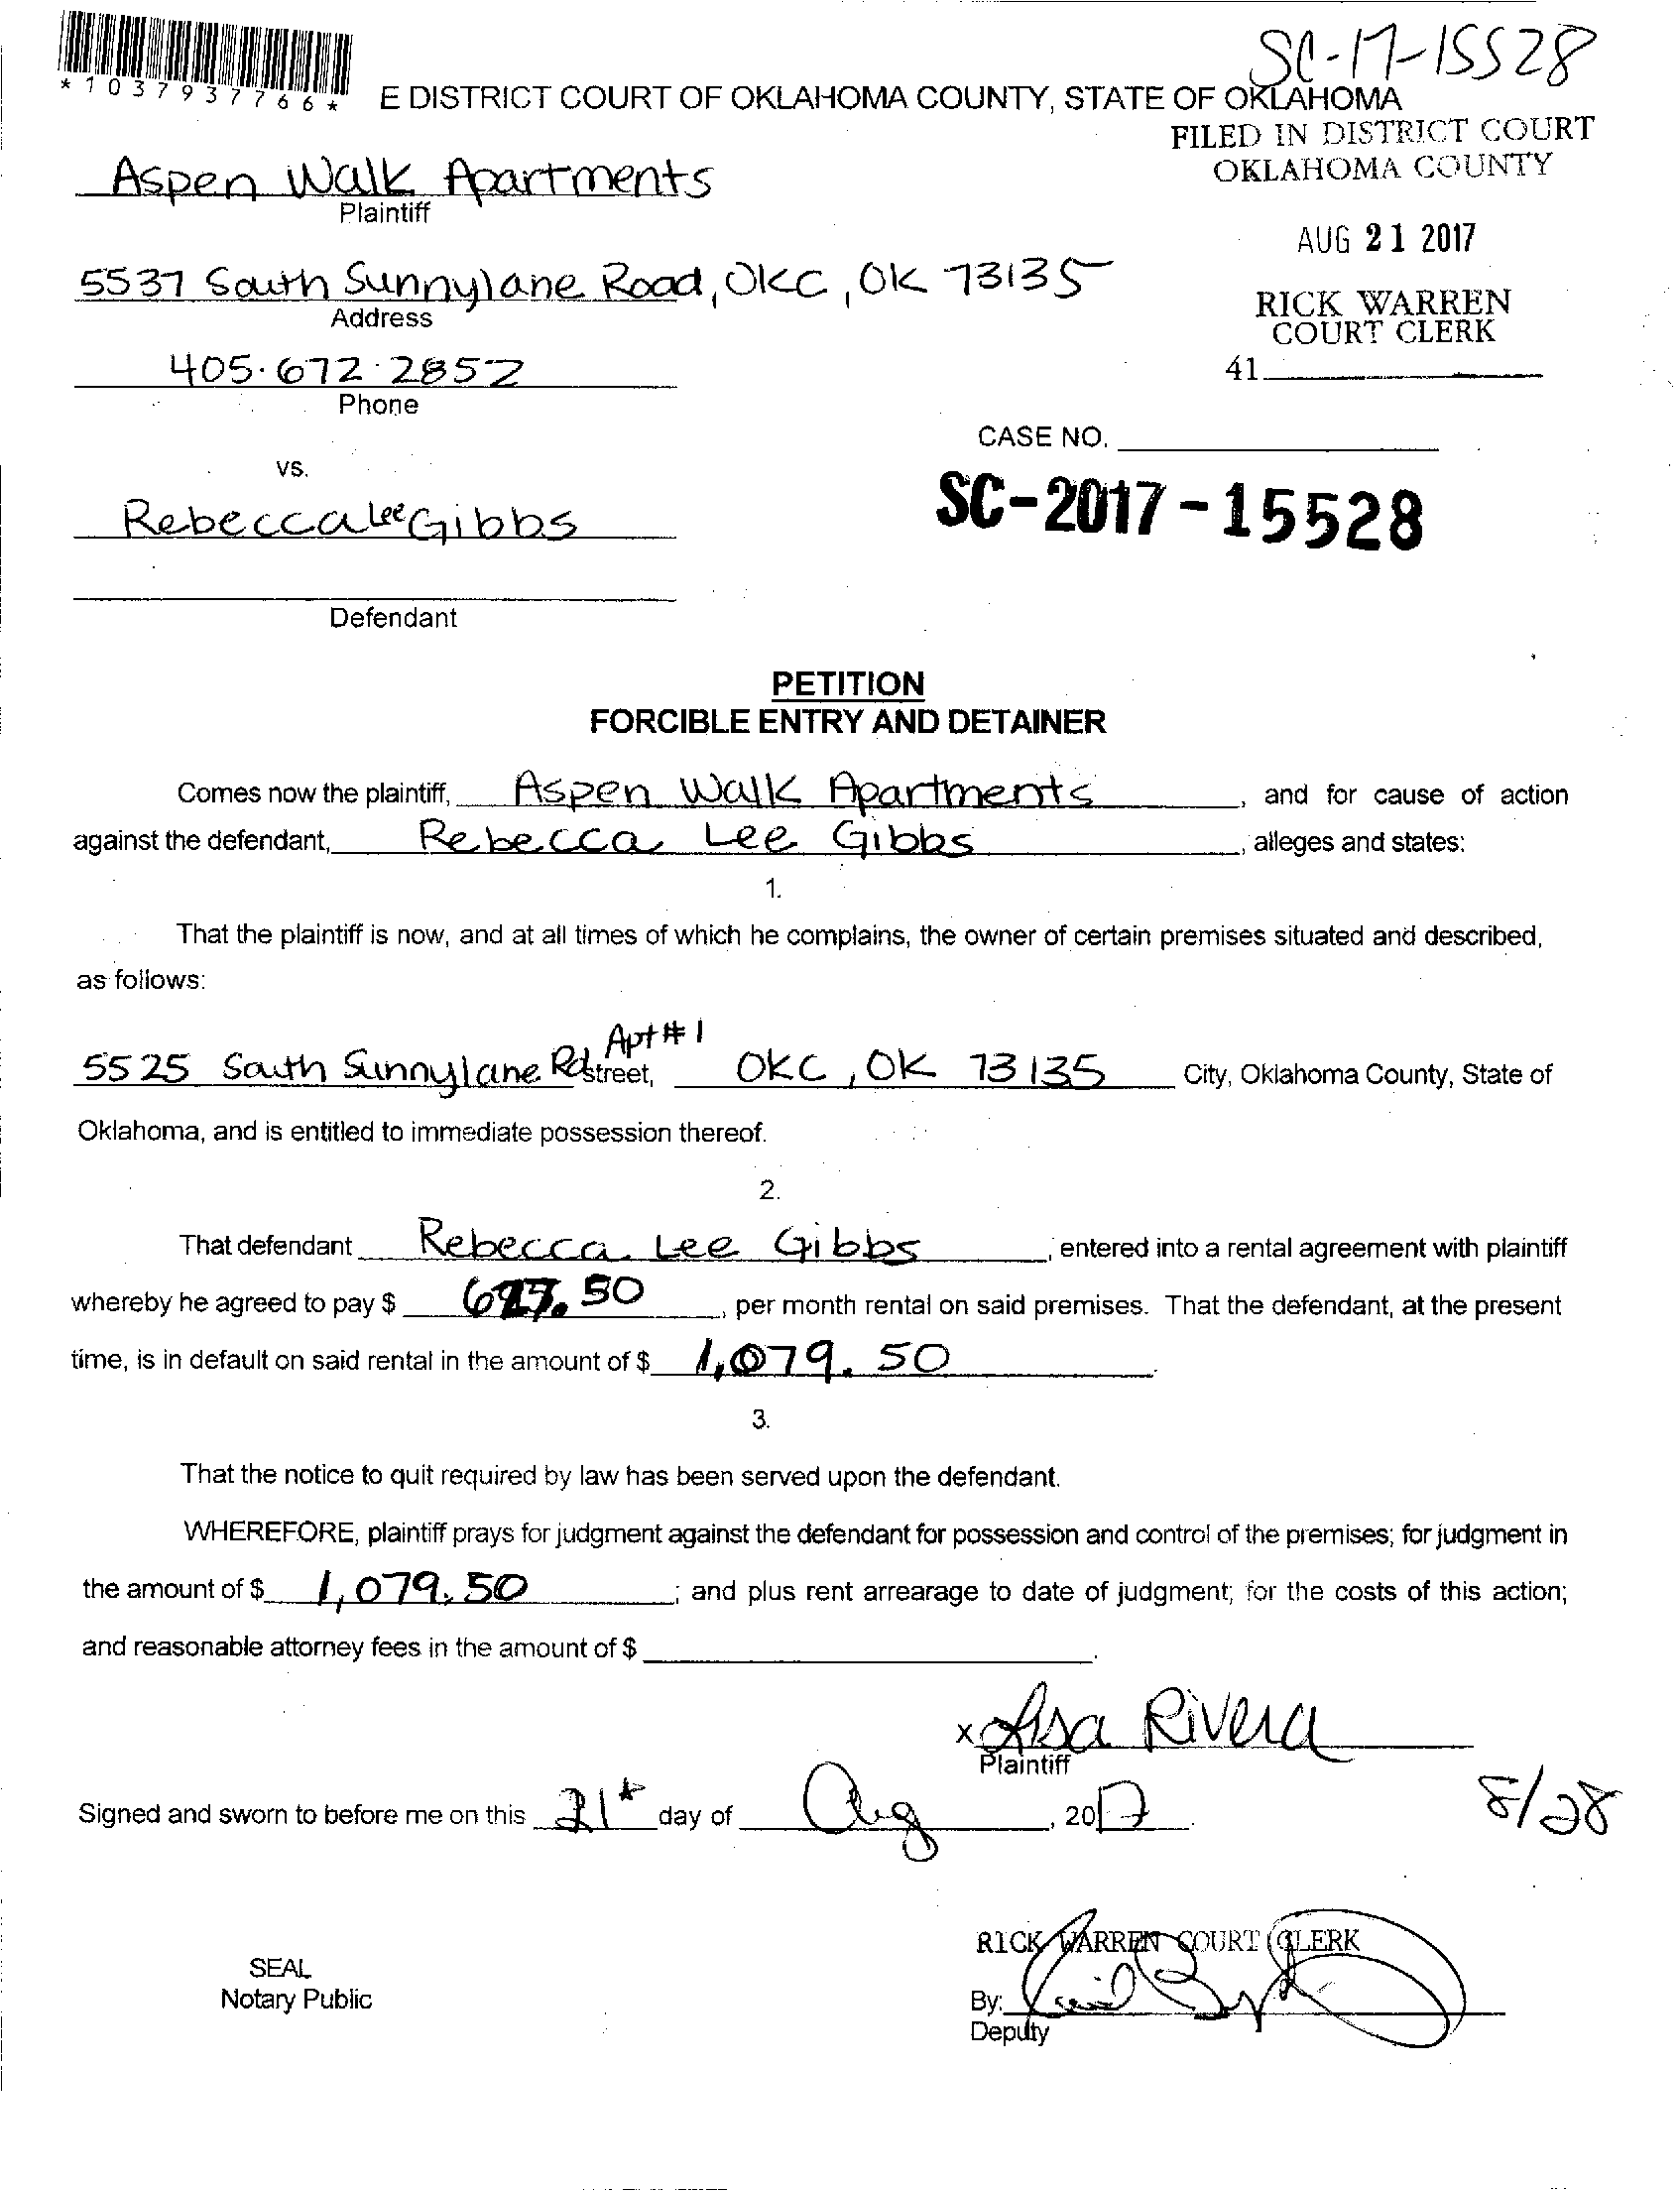 SC-17-15528
*1037937766*
E DISTRICT COURT OF OKLAHOMA COUNTY, STATE OF OKLAHOMA
FILED IN DISTRICT COURT
OKLAHOMA COUNTY
Aspen Walk Apartments
Plaintiff
AUG 21 2017
5537 South Sunnylane Road, OKC, OK 73135
Address
RICK WARREN
COURT CLERK
405·672·2852
41
Phone
CASE NO.
vs.
SC-2017-15528
Rebecca Lee Gibbs
Defendant
PETITION
FORCIBLE ENTRY AND DETAINER
Comes now the plaintiff, Aspen Walk Apartments, and for cause of action
against the defendant, Rebecca Lee Gibbs, alleges and states:
1.
That the plaintiff is now, and at all times of which he complains, the owner of certain premises situated and described,
as follows:
Apt #1
5525 South Sunnylane Rd street, OKC, OK 73135 City, Oklahoma County, State of
Oklahoma, and is entitled to immediate possession thereof.
2.
That defendant Rebecca Lee Gibbs, entered into a rental agreement with plaintiff
whereby he agreed to pay $ , per month rental on said premises. That the defendant, at the present
time, is in default on said rental in the amount of $ 1,079.50.
3.
That the notice to quit required by law has been served upon the defendant.
WHEREFORE, plaintiff prays for judgment against the defendant for possession and control of the premises; for judgment in
the amount of $ 1,079.50; and plus rent arrearage to date of judgment; for the costs of this action;
and reasonable attorney fees in the amount of $ .
x Lisa Rivera
Plaintiff
Signed and sworn to before me on this 21st day of Aug, 2017.
8/28
RICK WARREN COURT CLERK
SEAL
Notary Public
By:
Deputy